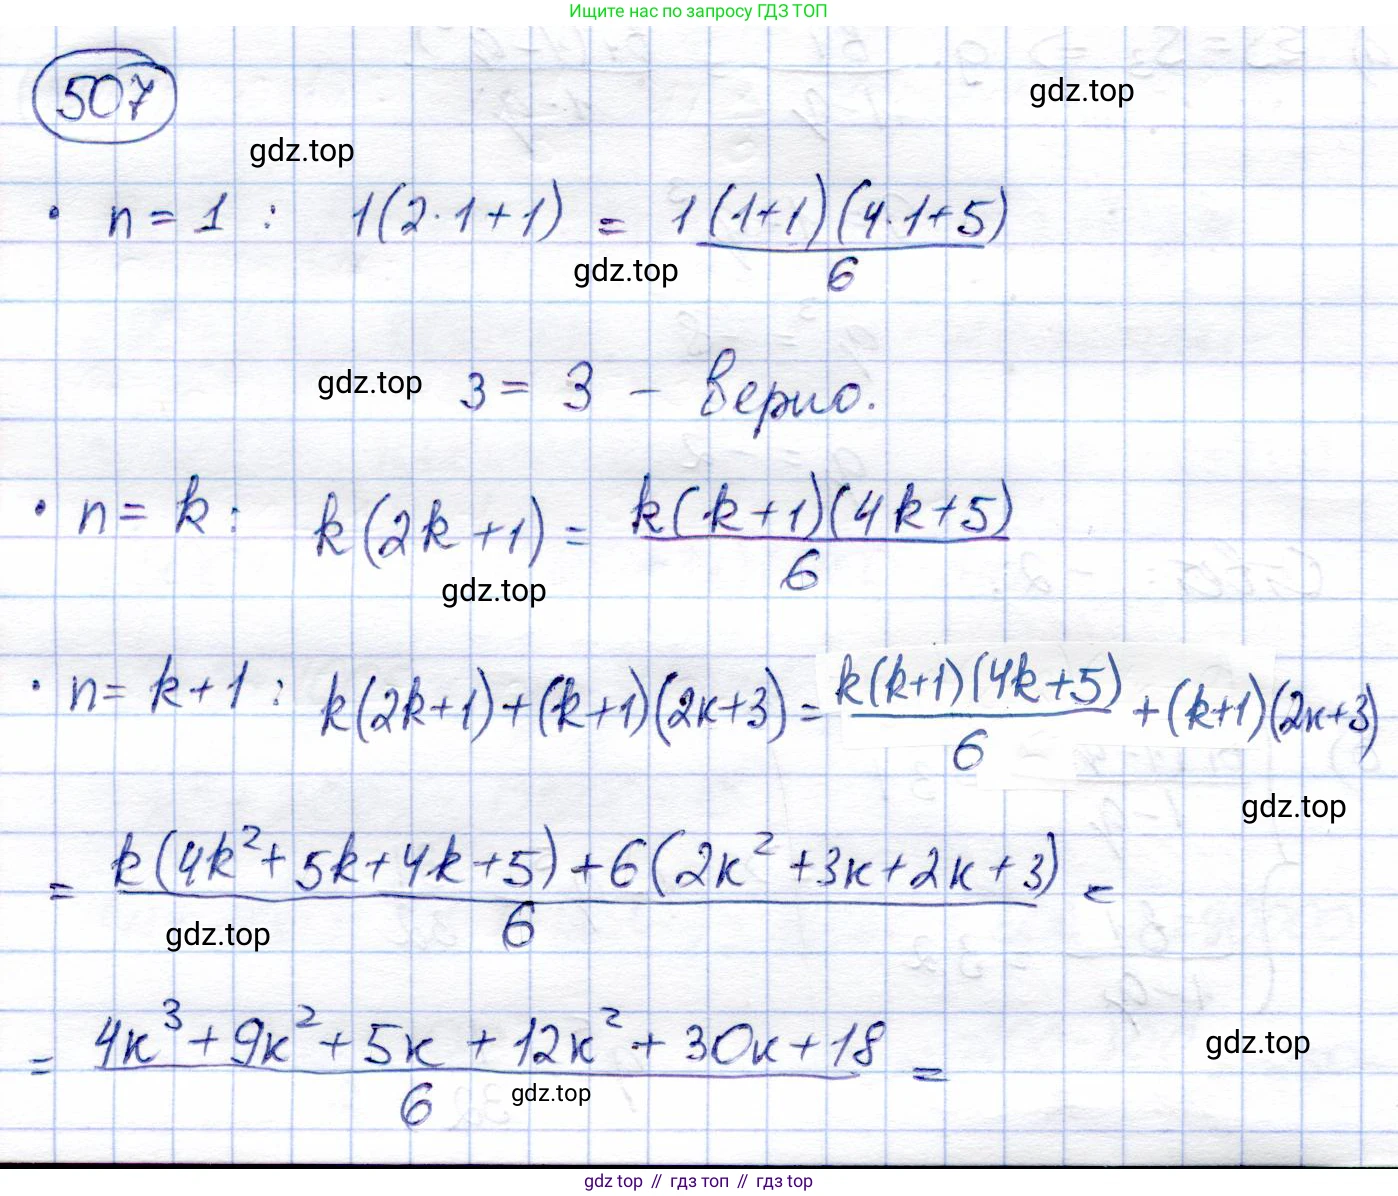 Ищите нас по запросу ГДЗ ТОП
507
gdz.top
gdz.top
· n = 1 : 1(2·1+1) = 1(1+1)(4·1+5)/6
gdz.top
gdz.top
3 = 3 – верно.
· n = k : k(2k+1) = k(k+1)(4k+5)/6
gdz.top
· n = k+1 : k(2k+1)+(k+1)(2k+3) = k(k+1)(4k+5)/6 + (k+1)(2k+3)
gdz.top
= k(4k²+5k+4k+5)+6(2k²+3k+2k+3)/6 =
gdz.top
= 4k³+9k²+5k+12k²+30k+18/6 =
gdz.top
gdz.top
gdz top // гдз топ // гдз top